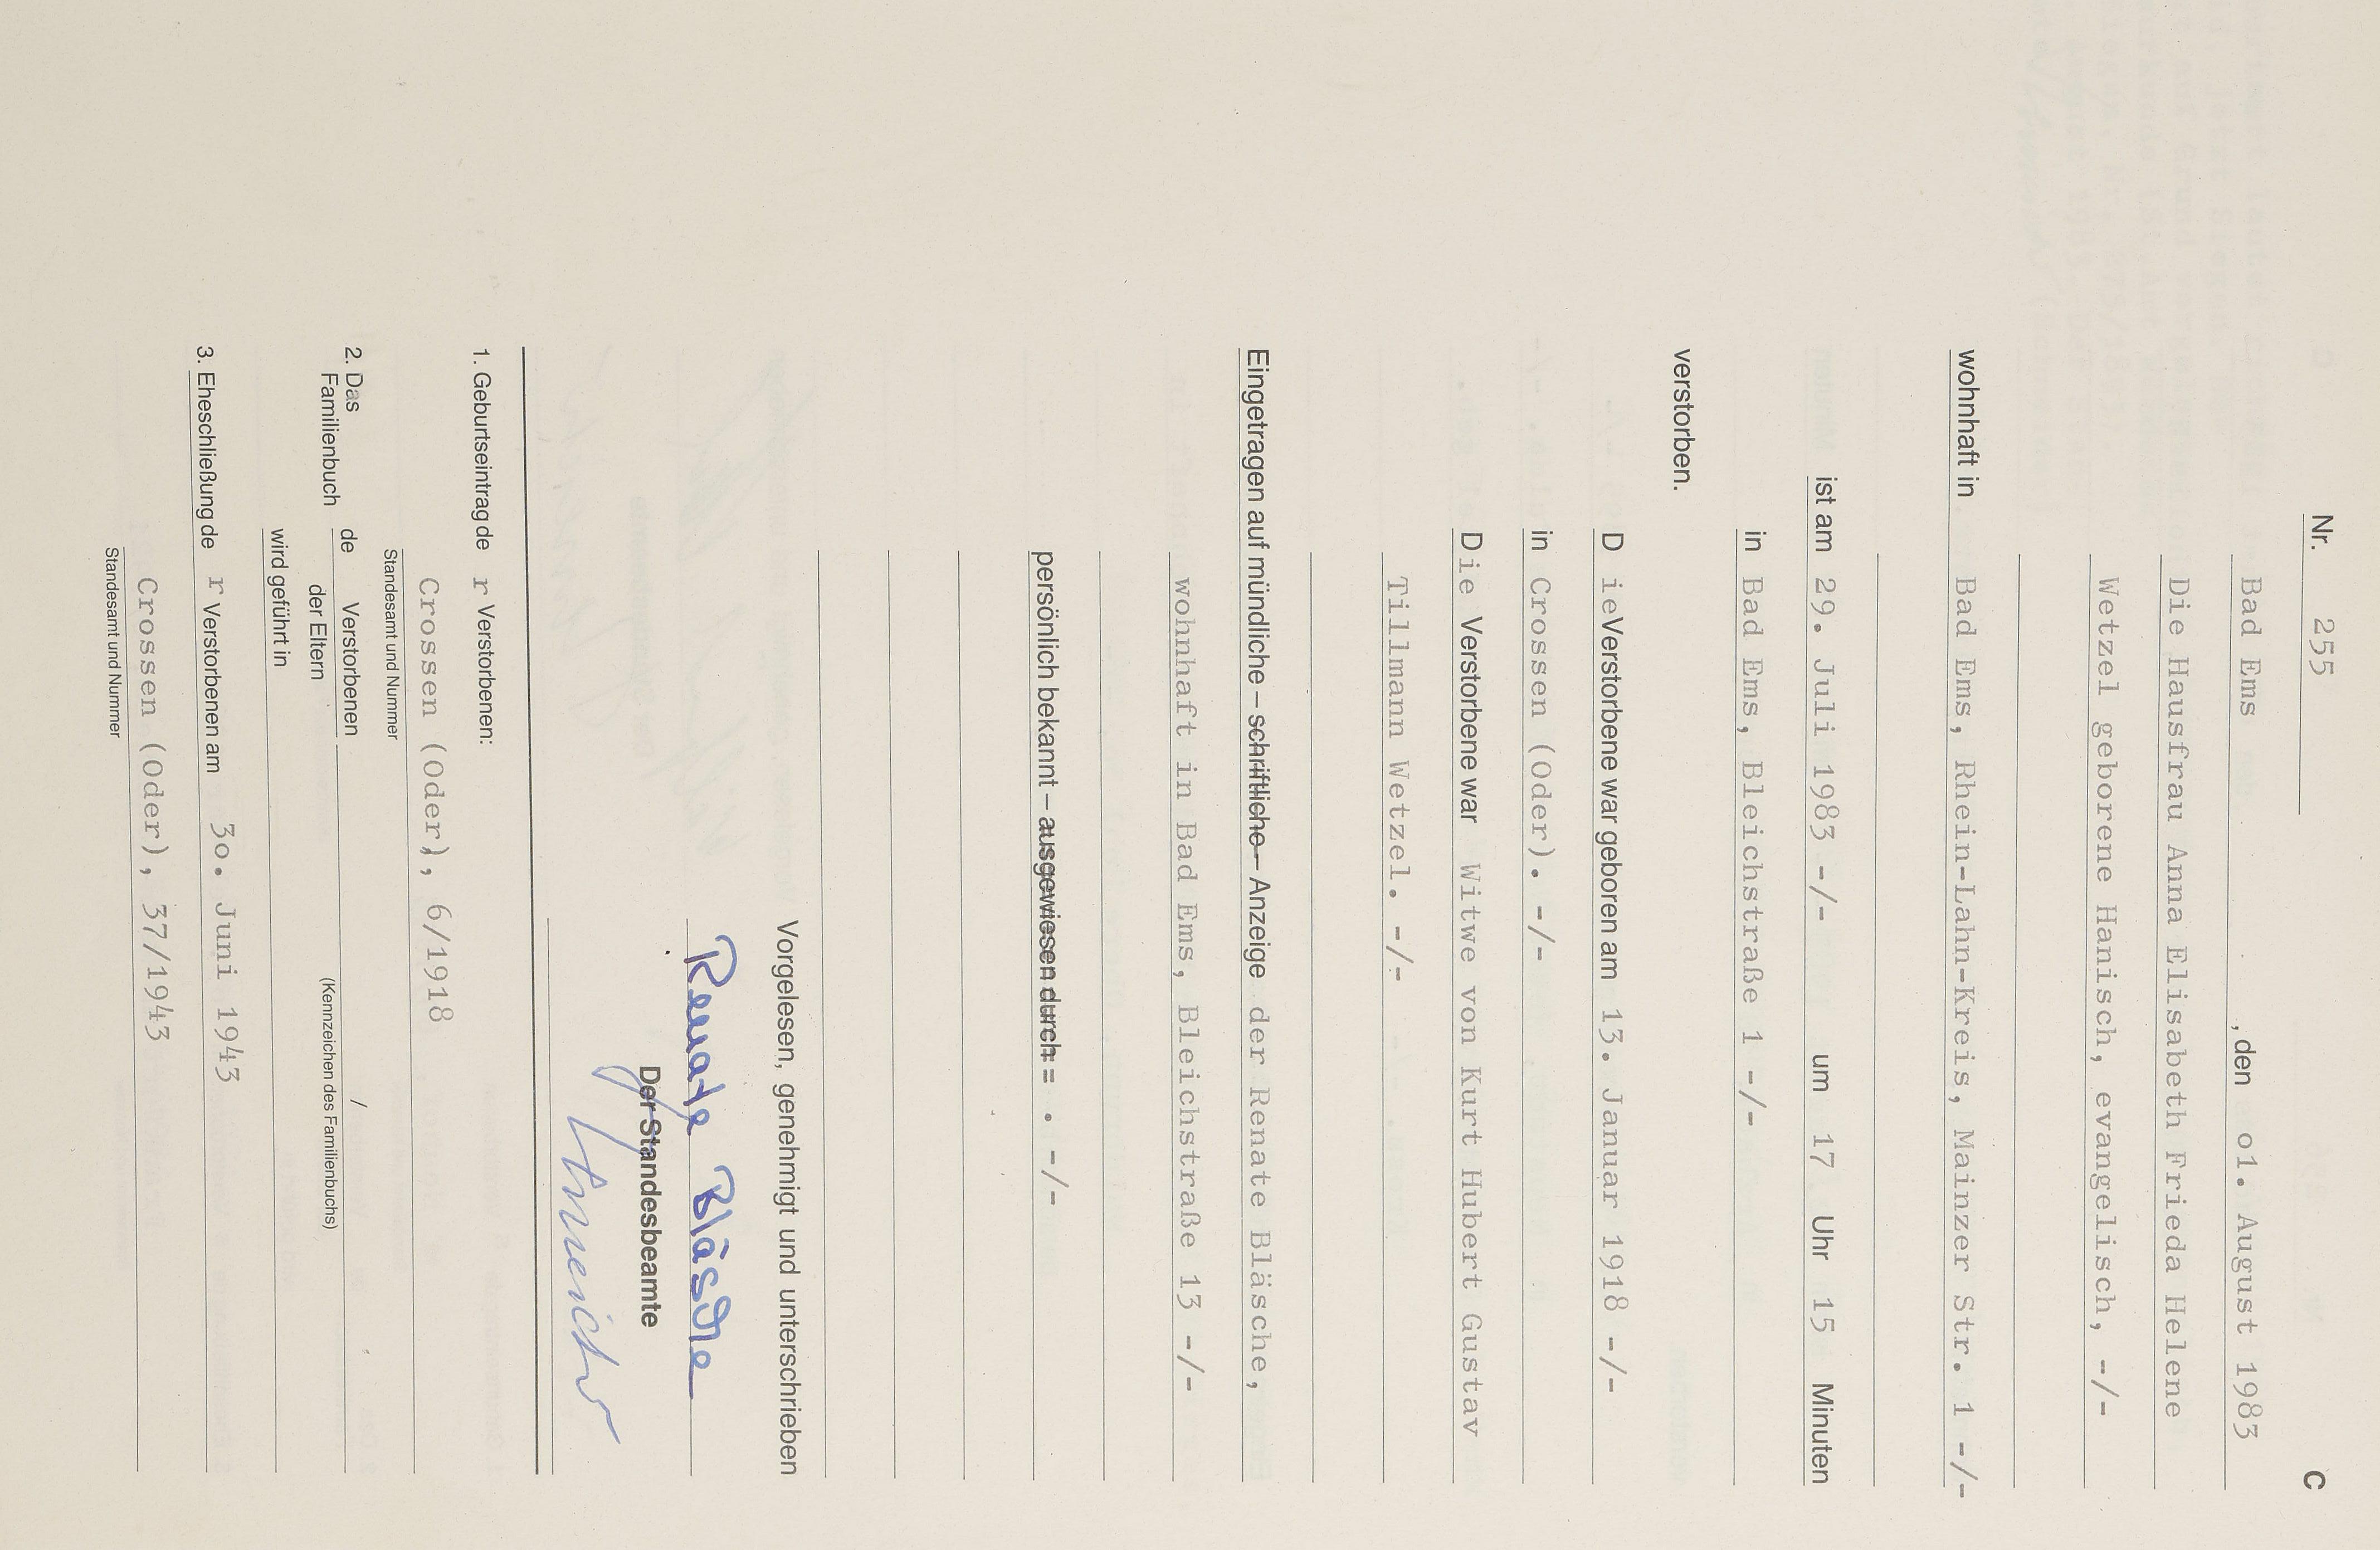 Nr. 255 C
Bad Ems , den o1. August 1983
Die Hausfrau Anna Elisabeth Frieda Helene
Wetzel geborene Hanisch, evangelisch, -/-
wohnhaft in Bad Ems, Rhein-Lahn-Kreis, Mainzer Str. 1 -/-
ist am 29. Juli 1983 -/- um 17 Uhr 15 Minuten
in Bad Ems, Bleichstraße 1 -/-
verstorben.
D ieVerstorbene war geboren am 13. Januar 1918 -/-
in Crossen (Oder). -/-
D ie Verstorbene war Witwe von Kurt Hubert Gustav
Tillmann Wetzel. -/-
Eingetragen auf mündliche – schriftliche – Anzeige der Renate Bläsche,
wohnhaft in Bad Ems, Bleichstraße 13 -/-
persönlich bekannt – ausgewiesen durch = . -/-
Vorgelesen, genehmigt und unterschrieben
Renate Bläsche
Der Standesbeamte
1. Geburtseintrag de r Verstorbenen:
Crossen (Oder), 6/1918
Standesamt und Nummer
2. Das de Verstorbenen /
Familienbuch der Eltern (Kennzeichen des Familienbuchs)
wird geführt in
3. Eheschließung de r Verstorbenen am 3o. Juni 1943
Crossen (Oder), 37/1943
Standesamt und Nummer